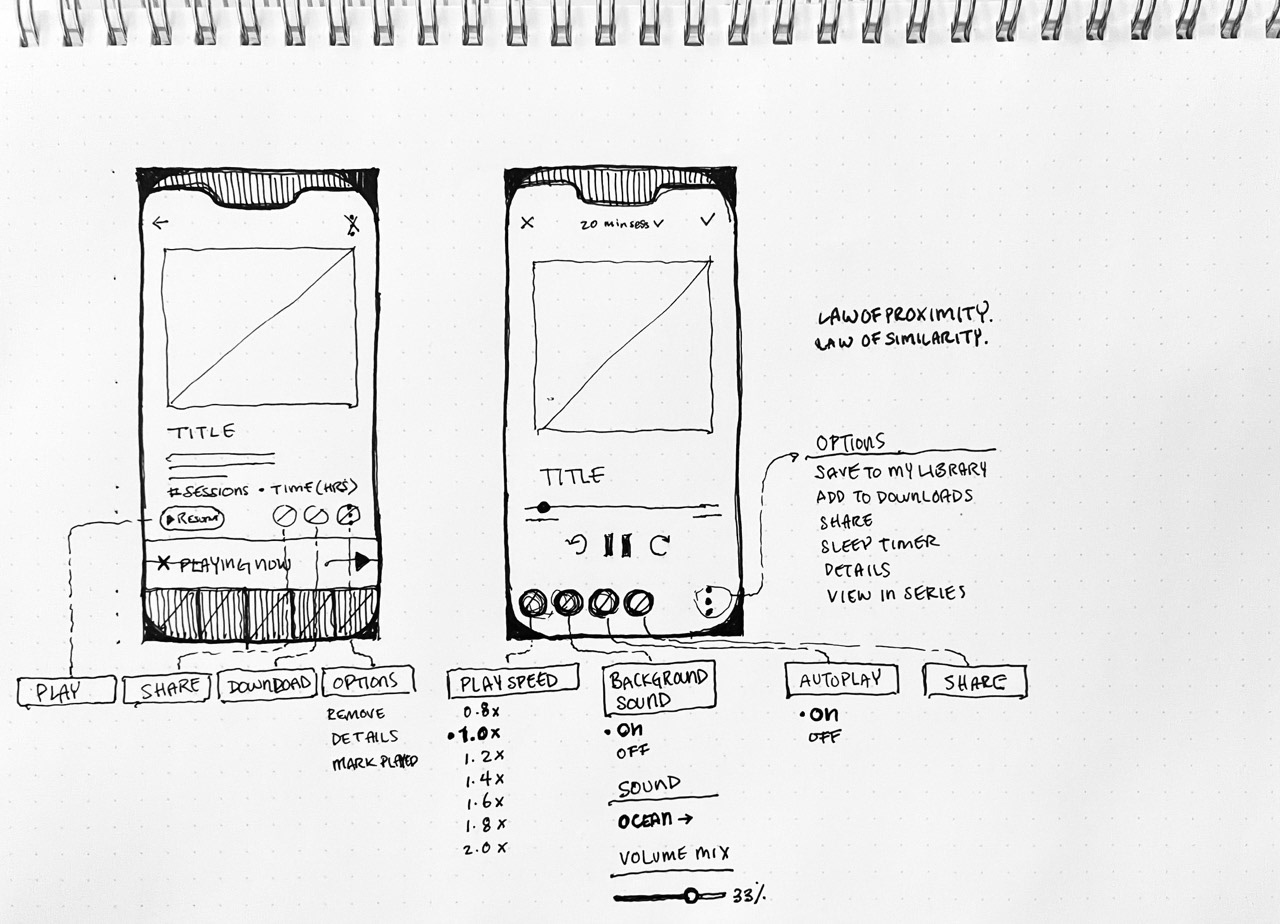 TITLE
# SESSIONS • TIME (HRS)
RESUME
PLAYING NOW
PLAY
SHARE
DOWNLOAD
OPTIONS
REMOVE
DETAILS
MARK PLAYED
20 min sess
TITLE
PLAY SPEED
0.8x
• 1.0x
1.2x
1.4x
1.6x
1.8x
2.0x
BACKGROUND
SOUND
• On
OFF
SOUND
OCEAN →
VOLUME MIX
33%
AUTOPLAY
• On
OFF
SHARE
LAW OF PROXIMITY.
LAW OF SIMILARITY.
OPTIONS
SAVE TO MY LIBRARY
ADD TO DOWNLOADS
SHARE
SLEEP TIMER
DETAILS
VIEW IN SERIES